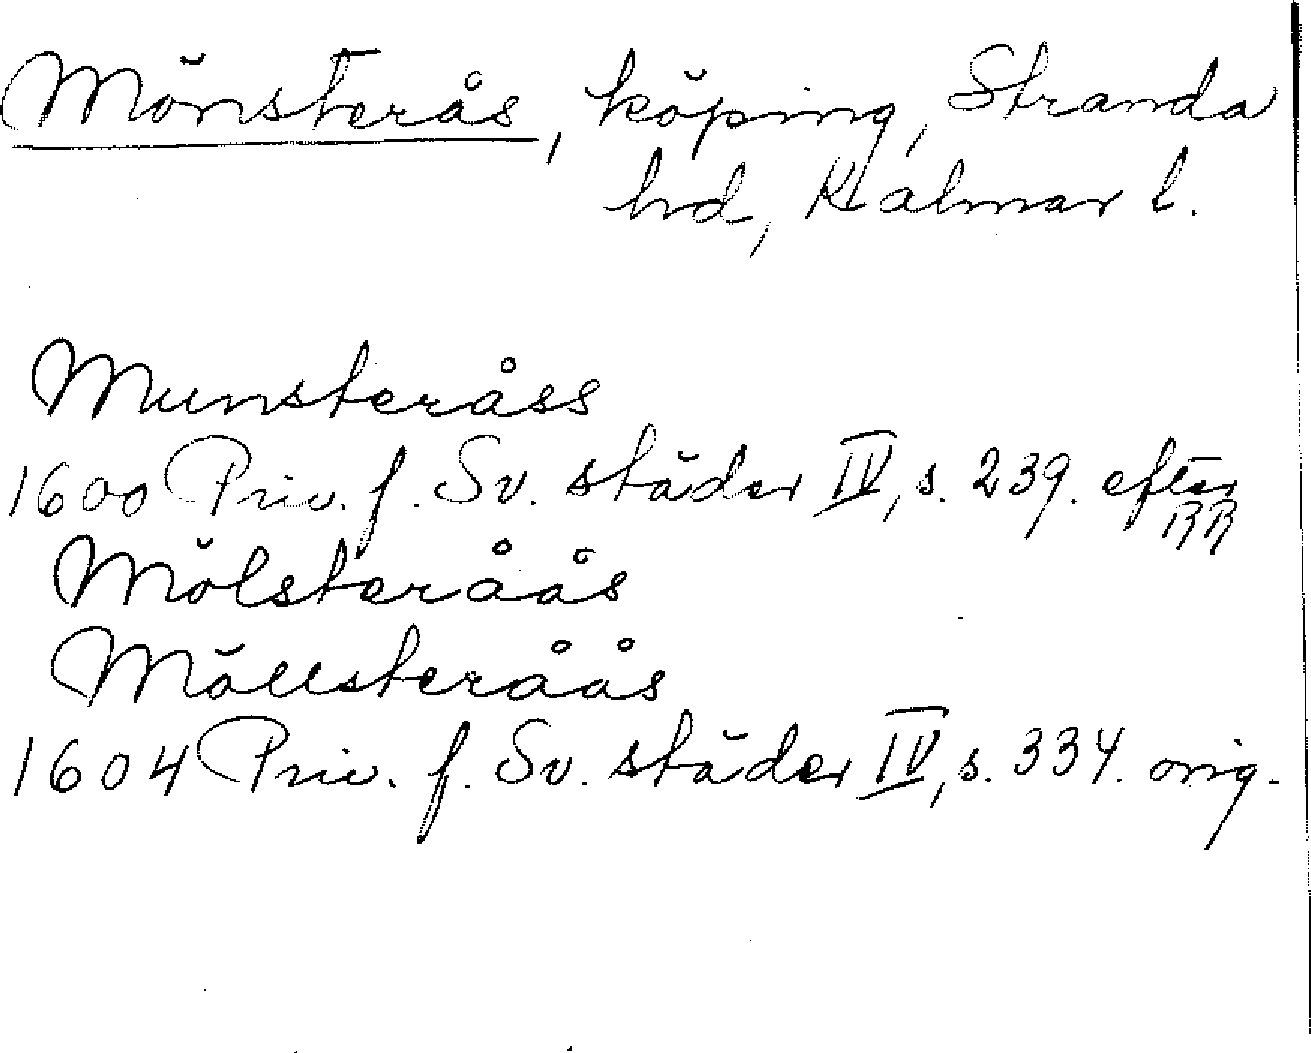 Mönsterås, köping, Stranda
hd, Kalmar l.
Munsteråss
1600 Priv. f. Sv. städer IV, s. 239. efter
RR
Mölsteråås
Möllsteråås
1604 Priv. f. Sv. städer IV, s. 334. orig.